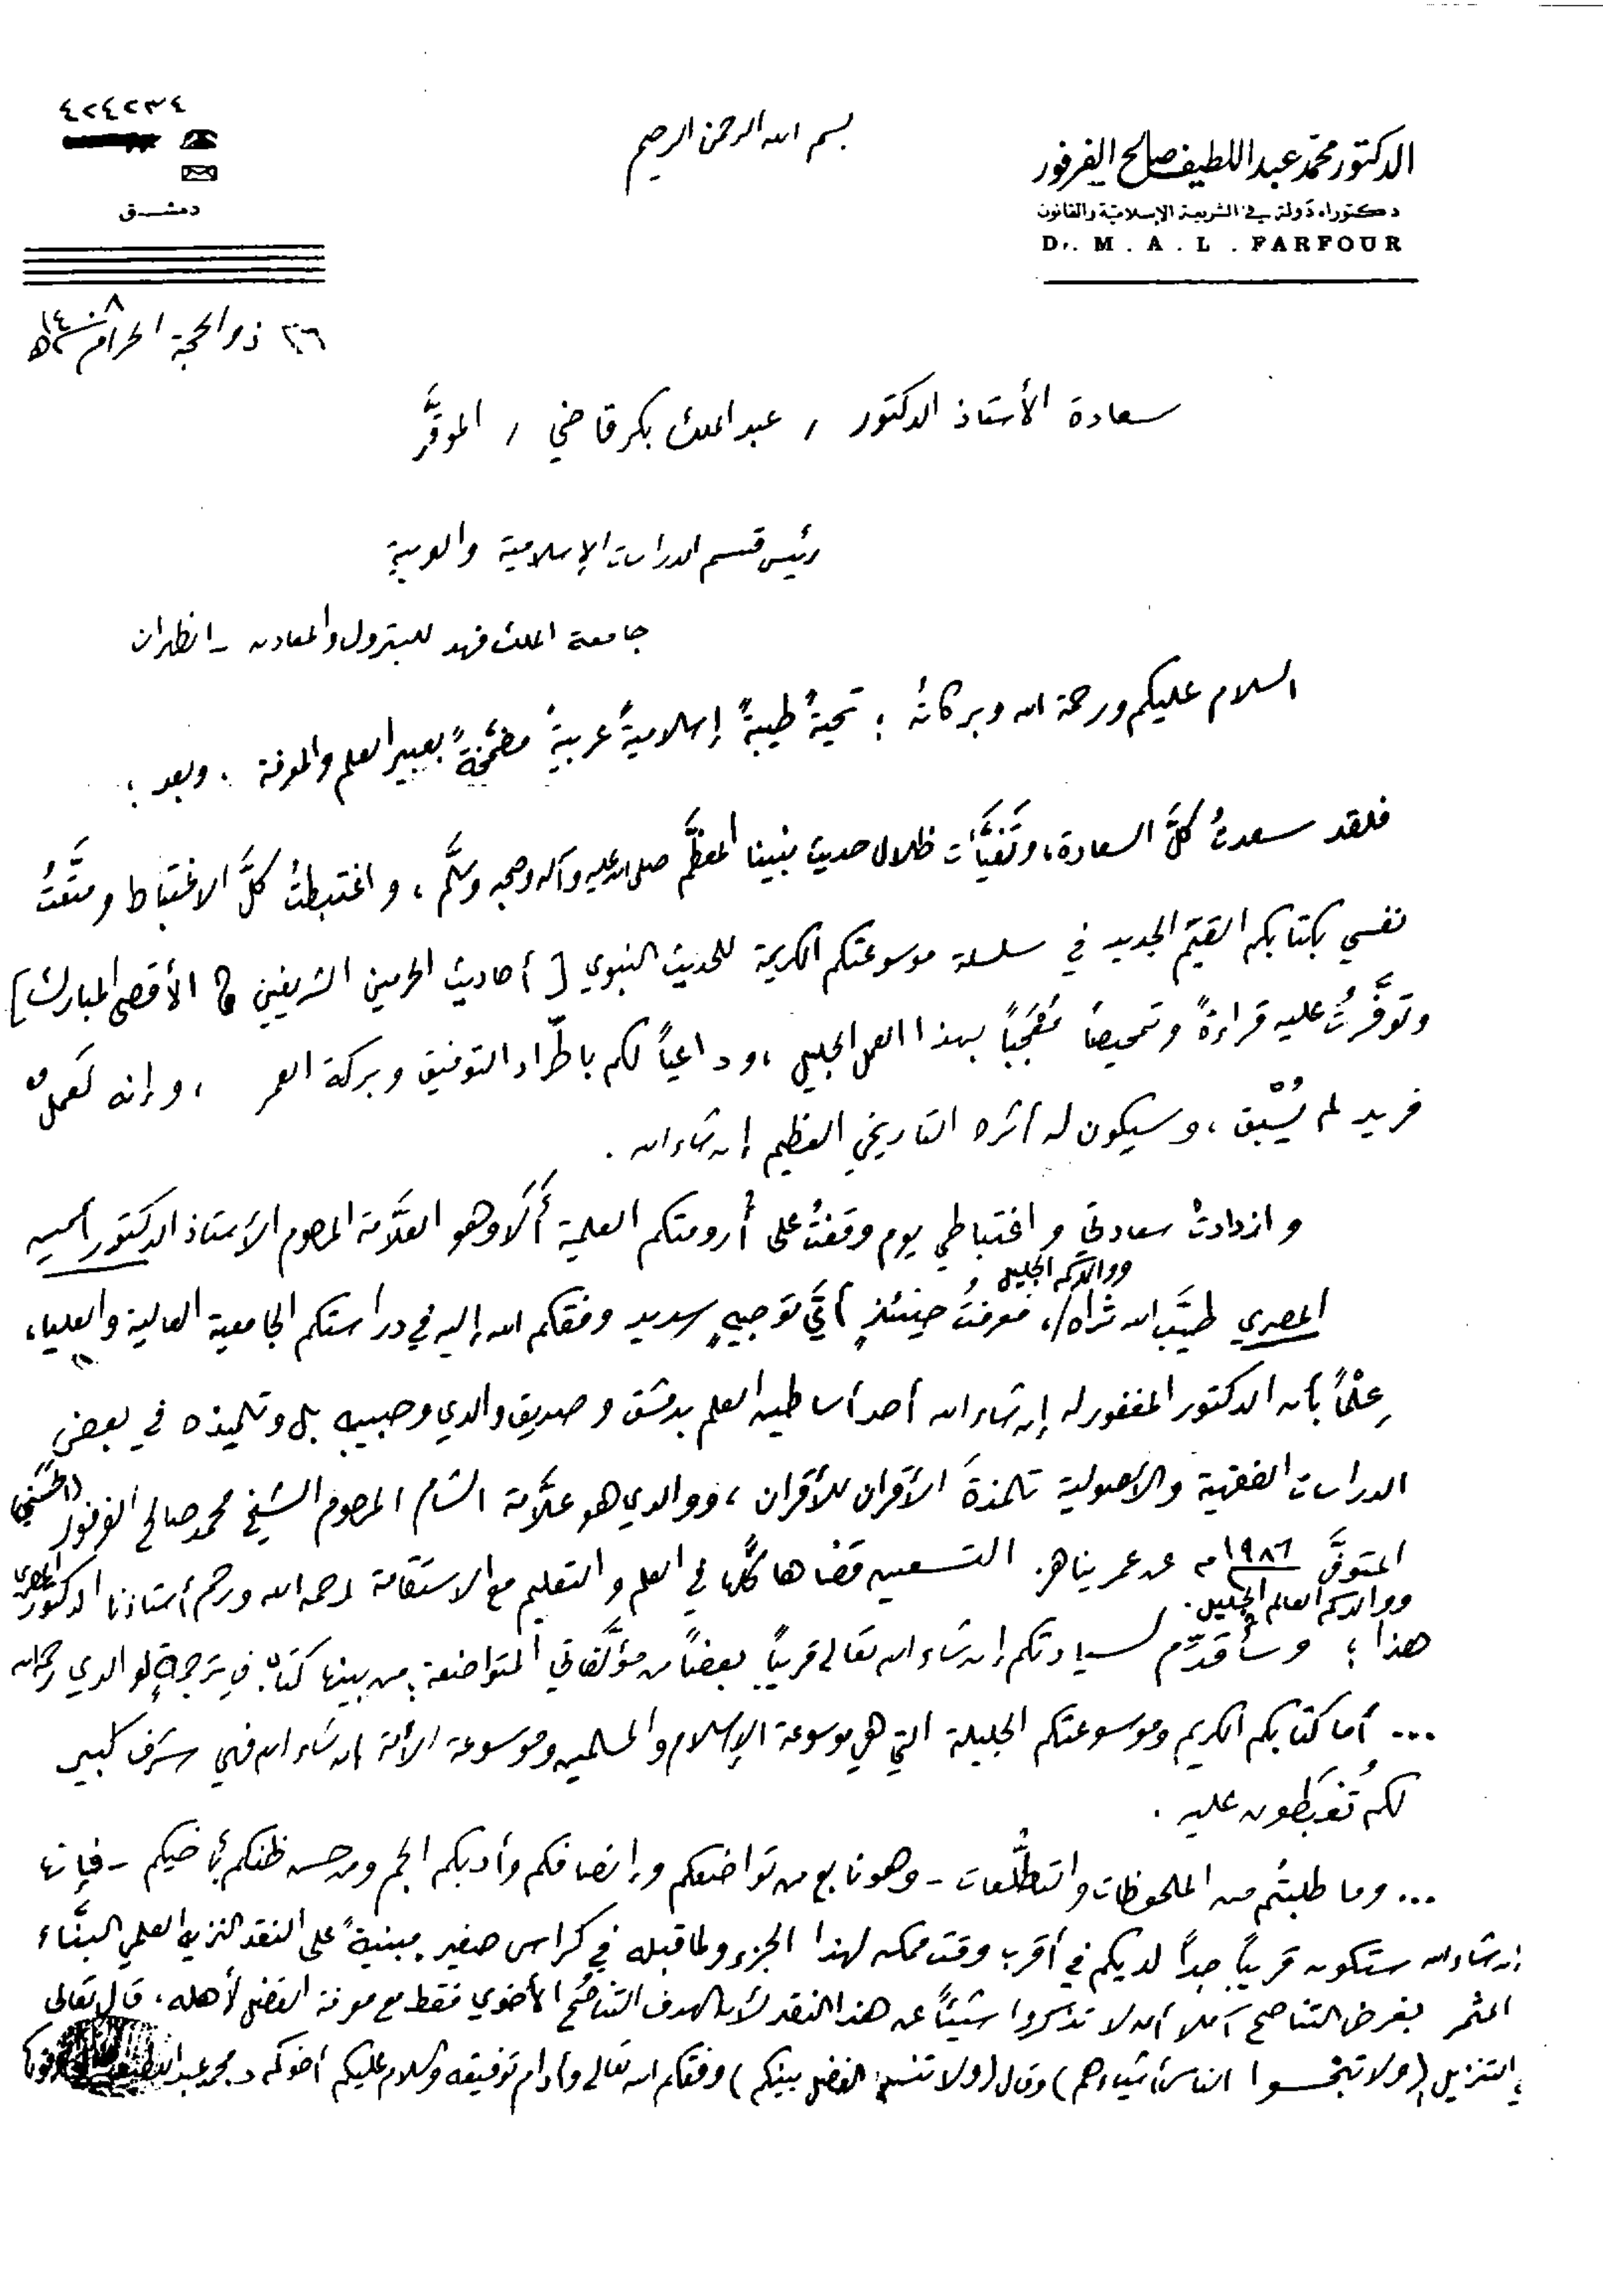 بسم الله الرحمن الرحيم
الدكتور محمد عبد اللطيف صالح الفرفور
دكتوراه دولة في الشريعة الإسلامية والقانون
D. M. A. L. FARFOUR
٤٢٤٢٣٤
دمشق
٢٦ ذو الحجة الحرام ١٤٠٨ هـ
سعادة الأستاذ الدكتور / عبد الملك بكر قاضي / الموقَّر
رئيس قسم الدراسات الإسلامية والعربية
جامعة الملك فهد للبترول والمعادن - الظهران
السلام عليكم ورحمة الله وبركاته ؛ تحيةً طيبةً إسلاميةً عربيةً مضمَّخةً بعبير العلم والمعرفة . وبعد ؛
فلقد سعدتُ كلَّ السعادة، وتَفَيَّأتُ ظلال حديث نبينا المعظَّم صلى الله عليه وآله وصحبه وسلَّم ، واغتبطتُ كلَّ الاغتباط ومتَّعتُ
نفسي بكتابكم القيّم الجديد في سلسلة موسوعتكم الكريمة للحديث النبوي [ أحاديث الحرمين الشريفين و الأقصى المبارك ]
وتوفَّرتُ عليه قراءةً وتمحيصاً مُعْجَباً بهذا العمل الجليل ، وداعياً لكم باطّراد التوفيق وبركة العمر ، وإنه لَعملٌ
فريد لم يُسْبق ، وسيكون له أثره التاريخي العظيم إن شاء الله .
وازدادتْ سعادتي واغتباطي يوم وقفتُ على أُرومتكم العلمية أَلَا وهو العلَّامة المرحوم الأستاذ الدكتور أمين
المصري طيَّب الله ثراه / ووالدكم الجليل ، فعرفتُ حينئذٍ أيَّ توجيهٍ سديد وفقكم الله إليه في دراستكم الجامعية العالية والعلياء ،
عِلْماً بأن الدكتور المغفور له إن شاء الله أحد أساطين العلم بدمشق وصديق والدي وحبيبه بل وتلميذه في بعض
الدراسات الفقهية والأصولية تلمذةَ الأقران للأقران ، ووالدي هو علَّامة الشام المرحوم الشيخ محمد صالح الفرفور الحسني
المتوفَّى ١٩٨٦ م عن عمر يناهز التسعين قضاها كلَّها في العلم والتعليم مع الاستقامة رحمه الله ورحم أستاذنا الدكتور المصري
ووالدكم العالم الجليل .
هذا ؛ وسأُقدِّم لسيادتكم إن شاء الله تعالى قريباً بعضاً من مؤلَّفاتي المتواضعة ؛ من بينها كتابٌ في ترجمةٍ لوالدي رحمه الله
... أما كتابكم الكريم وموسوعتكم الجليلة التي هي موسوعة الإسلام والمسلمين وموسوعة الأمة إن شاء الله فهي شرف كبير
لكم تُغبَطون عليه .
... وما طلبتُم من الملحوظات والتطلُّعات - وهو نابع من تواضعكم وإنصافكم وأدبكم الجم ومن حسن ظنكم بأخيكم - فإنها
إن شاء الله ستكون قريباً جداً لديكم في أقرب وقت ممكن لهذا الجزء ولما قبله في كراس صغير مبنيةً على النقد النزيه العلمي البنَّاء
المثمر بغرض التناصح آملا أن لا تذكروا شيئاً عن هذا النقد لأن الهدف التناصُح الأخوي فقط مع معرفة الفضل لأهله ، قال تعالى
في التنزيل ( ولا تبخسوا الناس أشياءهم ) وقال ( ولا تنسوا الفضل بينكم ) وفقكم الله تعالى وأدام توفيقه والسلام عليكم أخوكم د. محمد عبد اللطيف